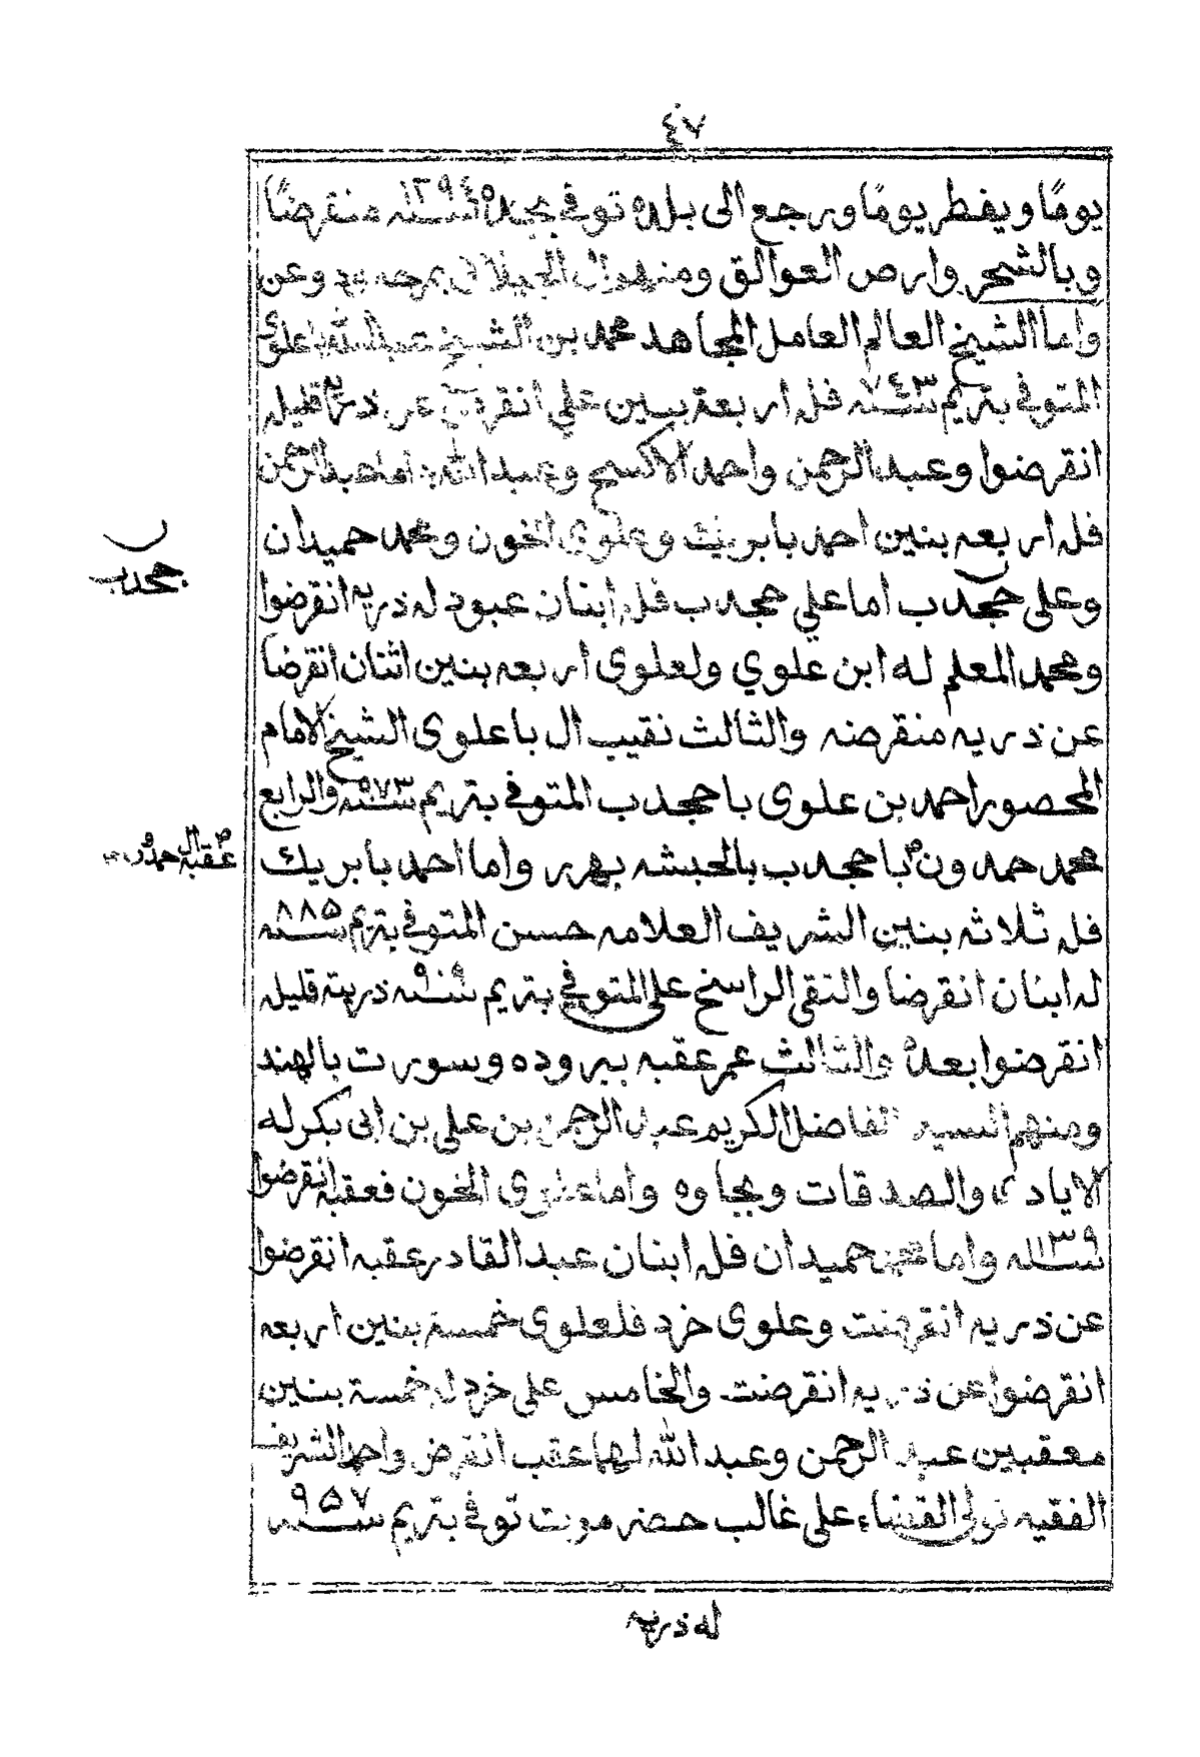 ٤٧
يومًا ويفطر يومًا ورجع الى بلده توفي بجده سنة ١٣٩٤ منقرضًا
وبالشحر وارض العوالق ومنهم ال الجيلاني وعن
واما الشيخ العالم العامل المجاهد محمد بن الشيخ عبدالله علوي
المتوفي بتريم سنة ٧٤٣ فله اربعة بنين علي انقرض عن ذرية قليله
انقرضوا وعبدالرحمن واحمد الاكسح وعبدالله اما عبدالرحمن
فله اربعه بنين احمد بابريك وعلوي الخون ومحمد حميدان
وعلى حجدب اما علي حجدب فله ابنان عبود له ذريه انقرضوا
ومحمد المعلم له ابن علوي ولعلوى اربعه بنين اثنان انقرضا
عن ذريه منقرضه والثالث نقيب ال باعلوى الشيخ الامام
المحصور احمد بن علوى باحجدب المتوفي بتريم سنة ٩٧٣ والرابع
محمد حمدون باحجدب بالحبشه بهرر واما احمد بابريك
فله ثلاثه بنين الشريف العلامه حسن المتوفي بتريم سنه ٨٨٥
له ابنان انقرضا والتقي الراسخ علي المتوفي بتريم سنه ٩٠٩ ذريته قليله
انقرضوا بعده والثالث عمر عقبه ببروده وسورت بالهند
ومنهم السيد الفاضل الكريم عبدالرحمن بن على بن ابى بكر له
الايادى والصدقات وبجاوه واما علوى الخون فعقبه انقرضوا
سنه ١١٣٩ واما محمد حميدان فله ابنان عبدالقادر عقبه انقرضوا
عن ذريه انقرضت وعلوى خرد فلعلوى خمسة بنين اربعه
انقرضوا عن ذريه انقرضت والخامس على خرد له خمسة بنين
معقبين عبدالرحمن وعبدالله لهما عقب انقرض واحمد الشريف
الفقيه تولى القضاء على غالب حضرموت توفي بتريم سنه ٩٥٧
له ذريه
حجدب
عقبه ال حمدون